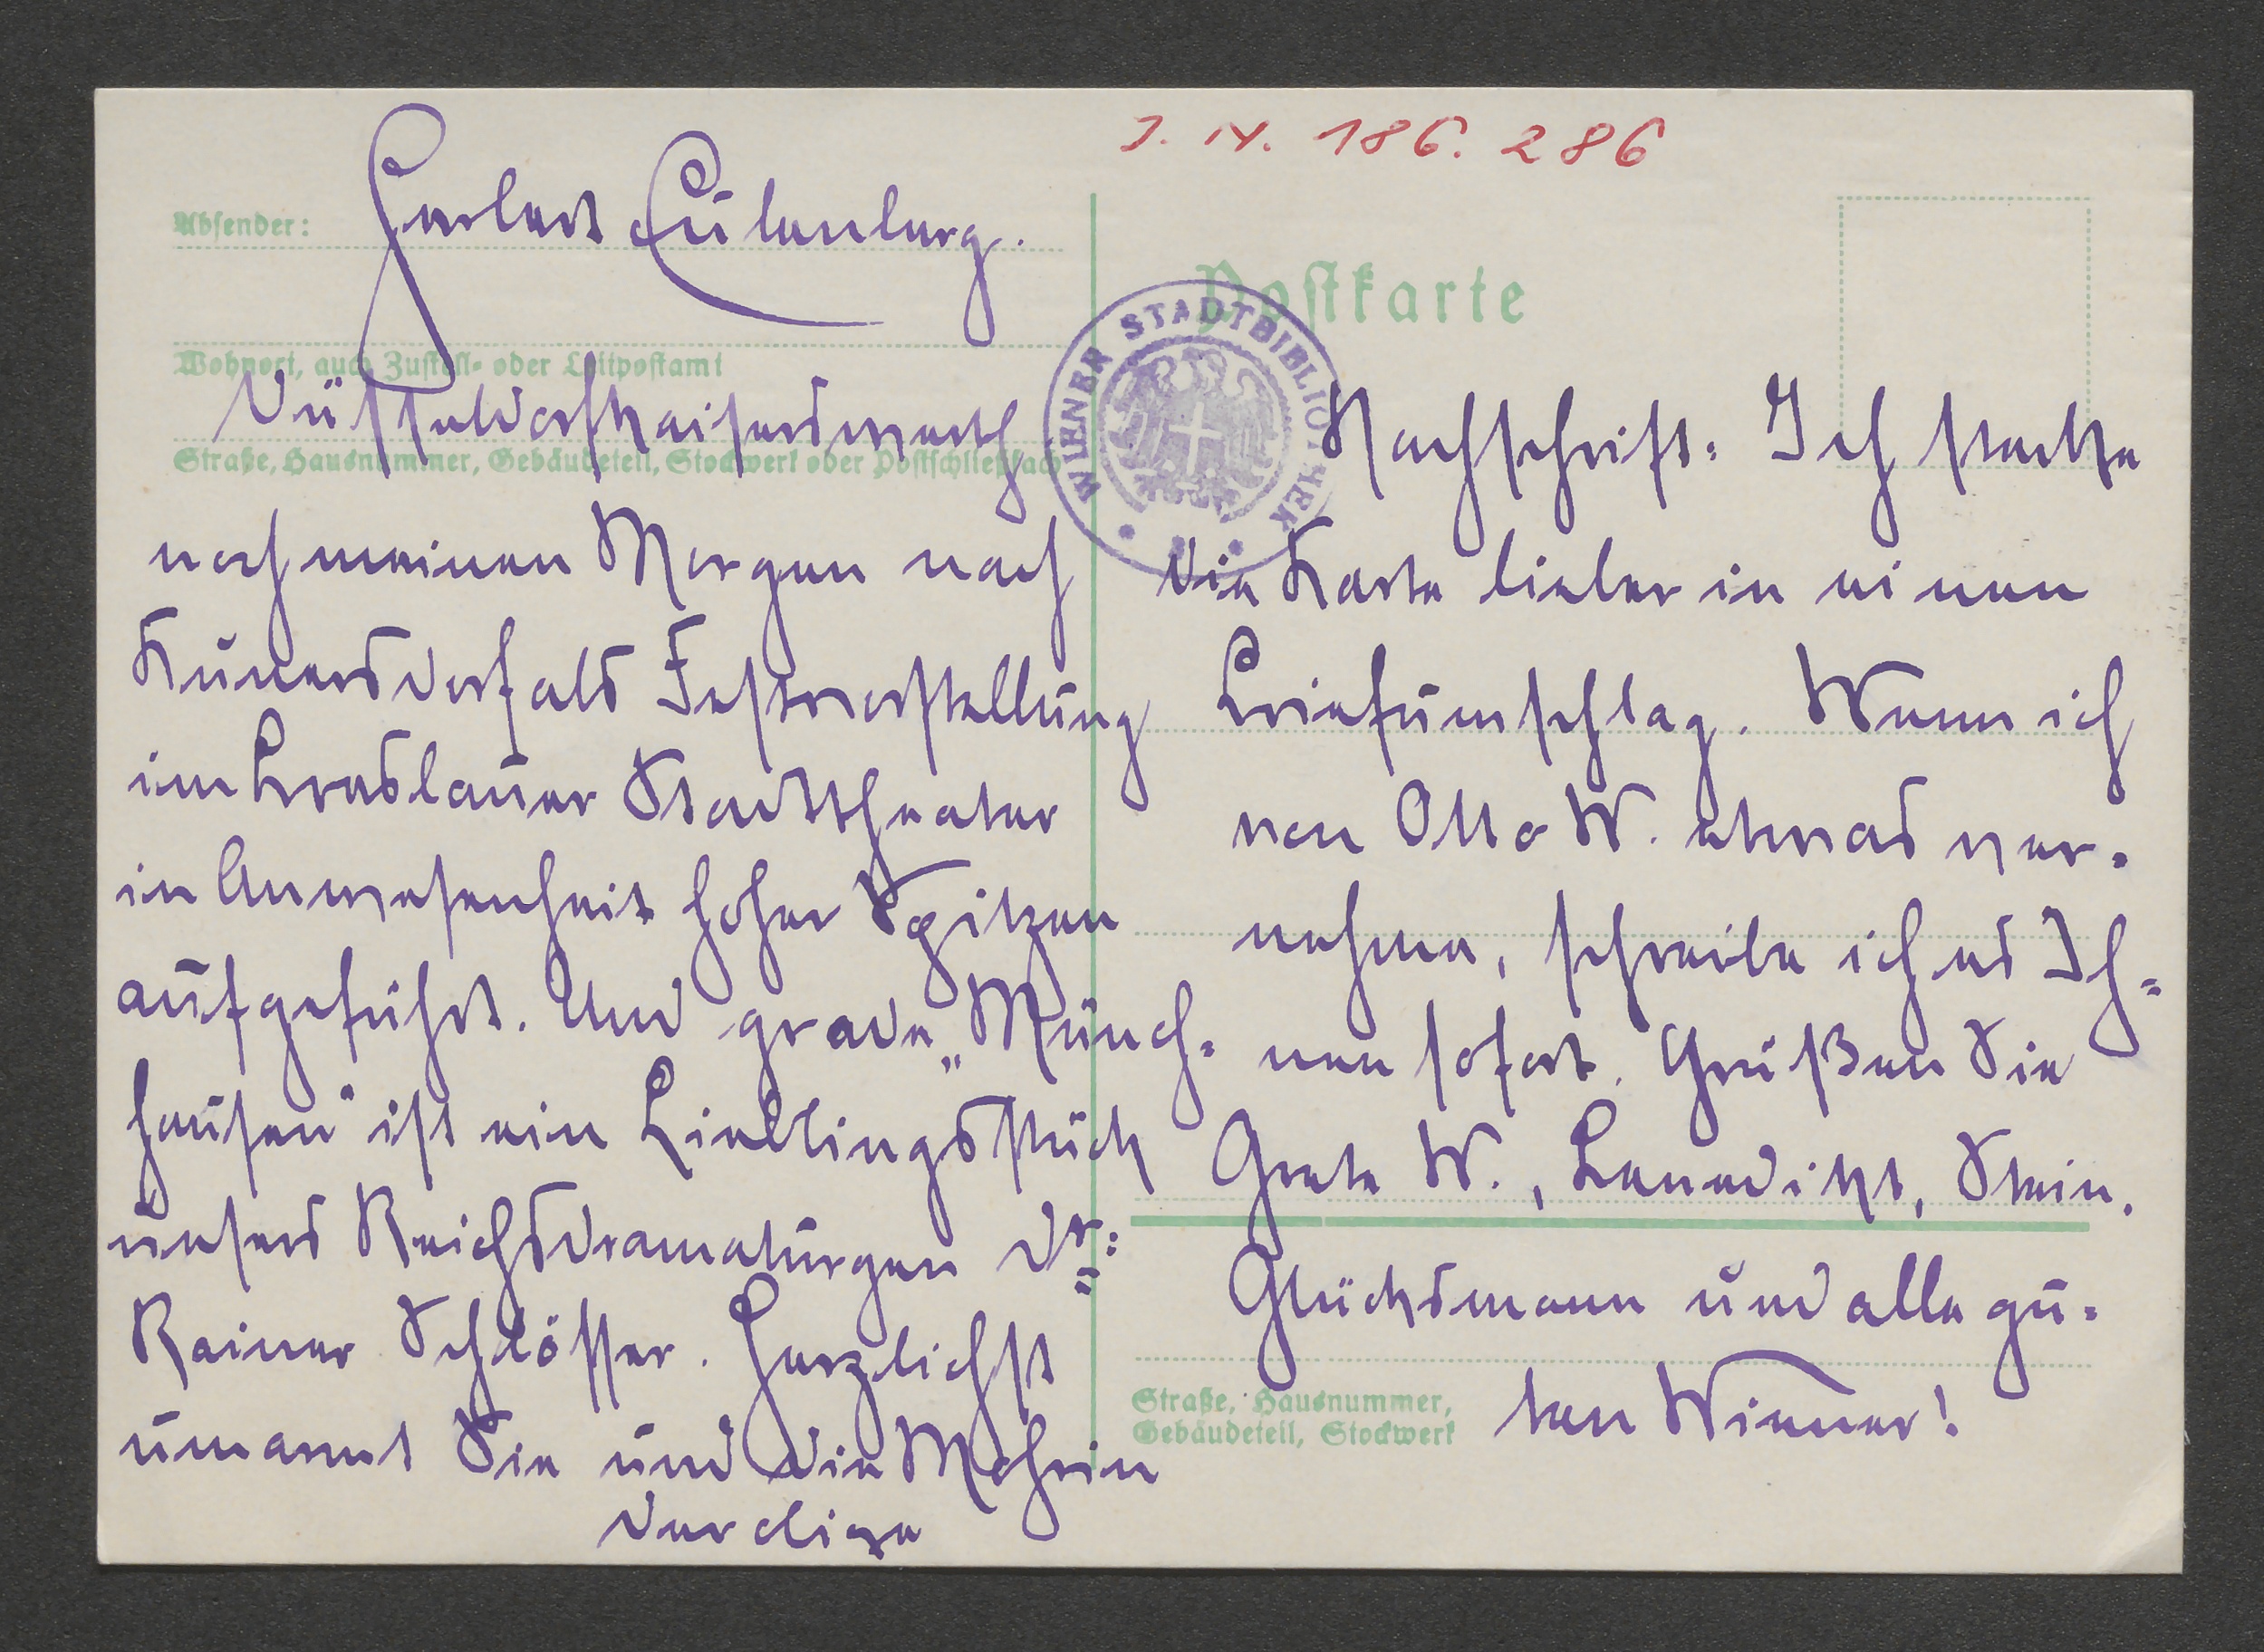 J. N. 186.286
Absender: Herbert Eulenberg.
Postkarte
WIENER STADTBIBLIOTHEK
Wohnort, auch Zustell- oder Leitpostamt
Düsseldorf Kaiserswerth
Straße, Hausnummer, Gebäudeteil, Stockwerk oder Postschließfach
noch meinen Morgen nach
Kunersdorf als Festvorstellung
im Breslauer Stadttheater
in Anwesenheit hoher Spitzen
aufgeführt. Und grade „Münch=
hausen" ist ein Lieblingsstück
unsers Reichsdramaturgen Dr:
Rainer Schlösser. Herzlichst
umarmt Sie und die Mohrin
der
Nachschrift: Ich stecke
die Karte lieber in einen
Briefumschlag. Wenn ich
von Otto W. etwas ver=
nehme, schreibe ich es Ih=
nen sofort. Grüßen Sie
Grete W., Stein,
Glücksmann und alle gu=
ten Wiener!
Straße, Hausnummer,
Gebäudeteil, Stockwerk